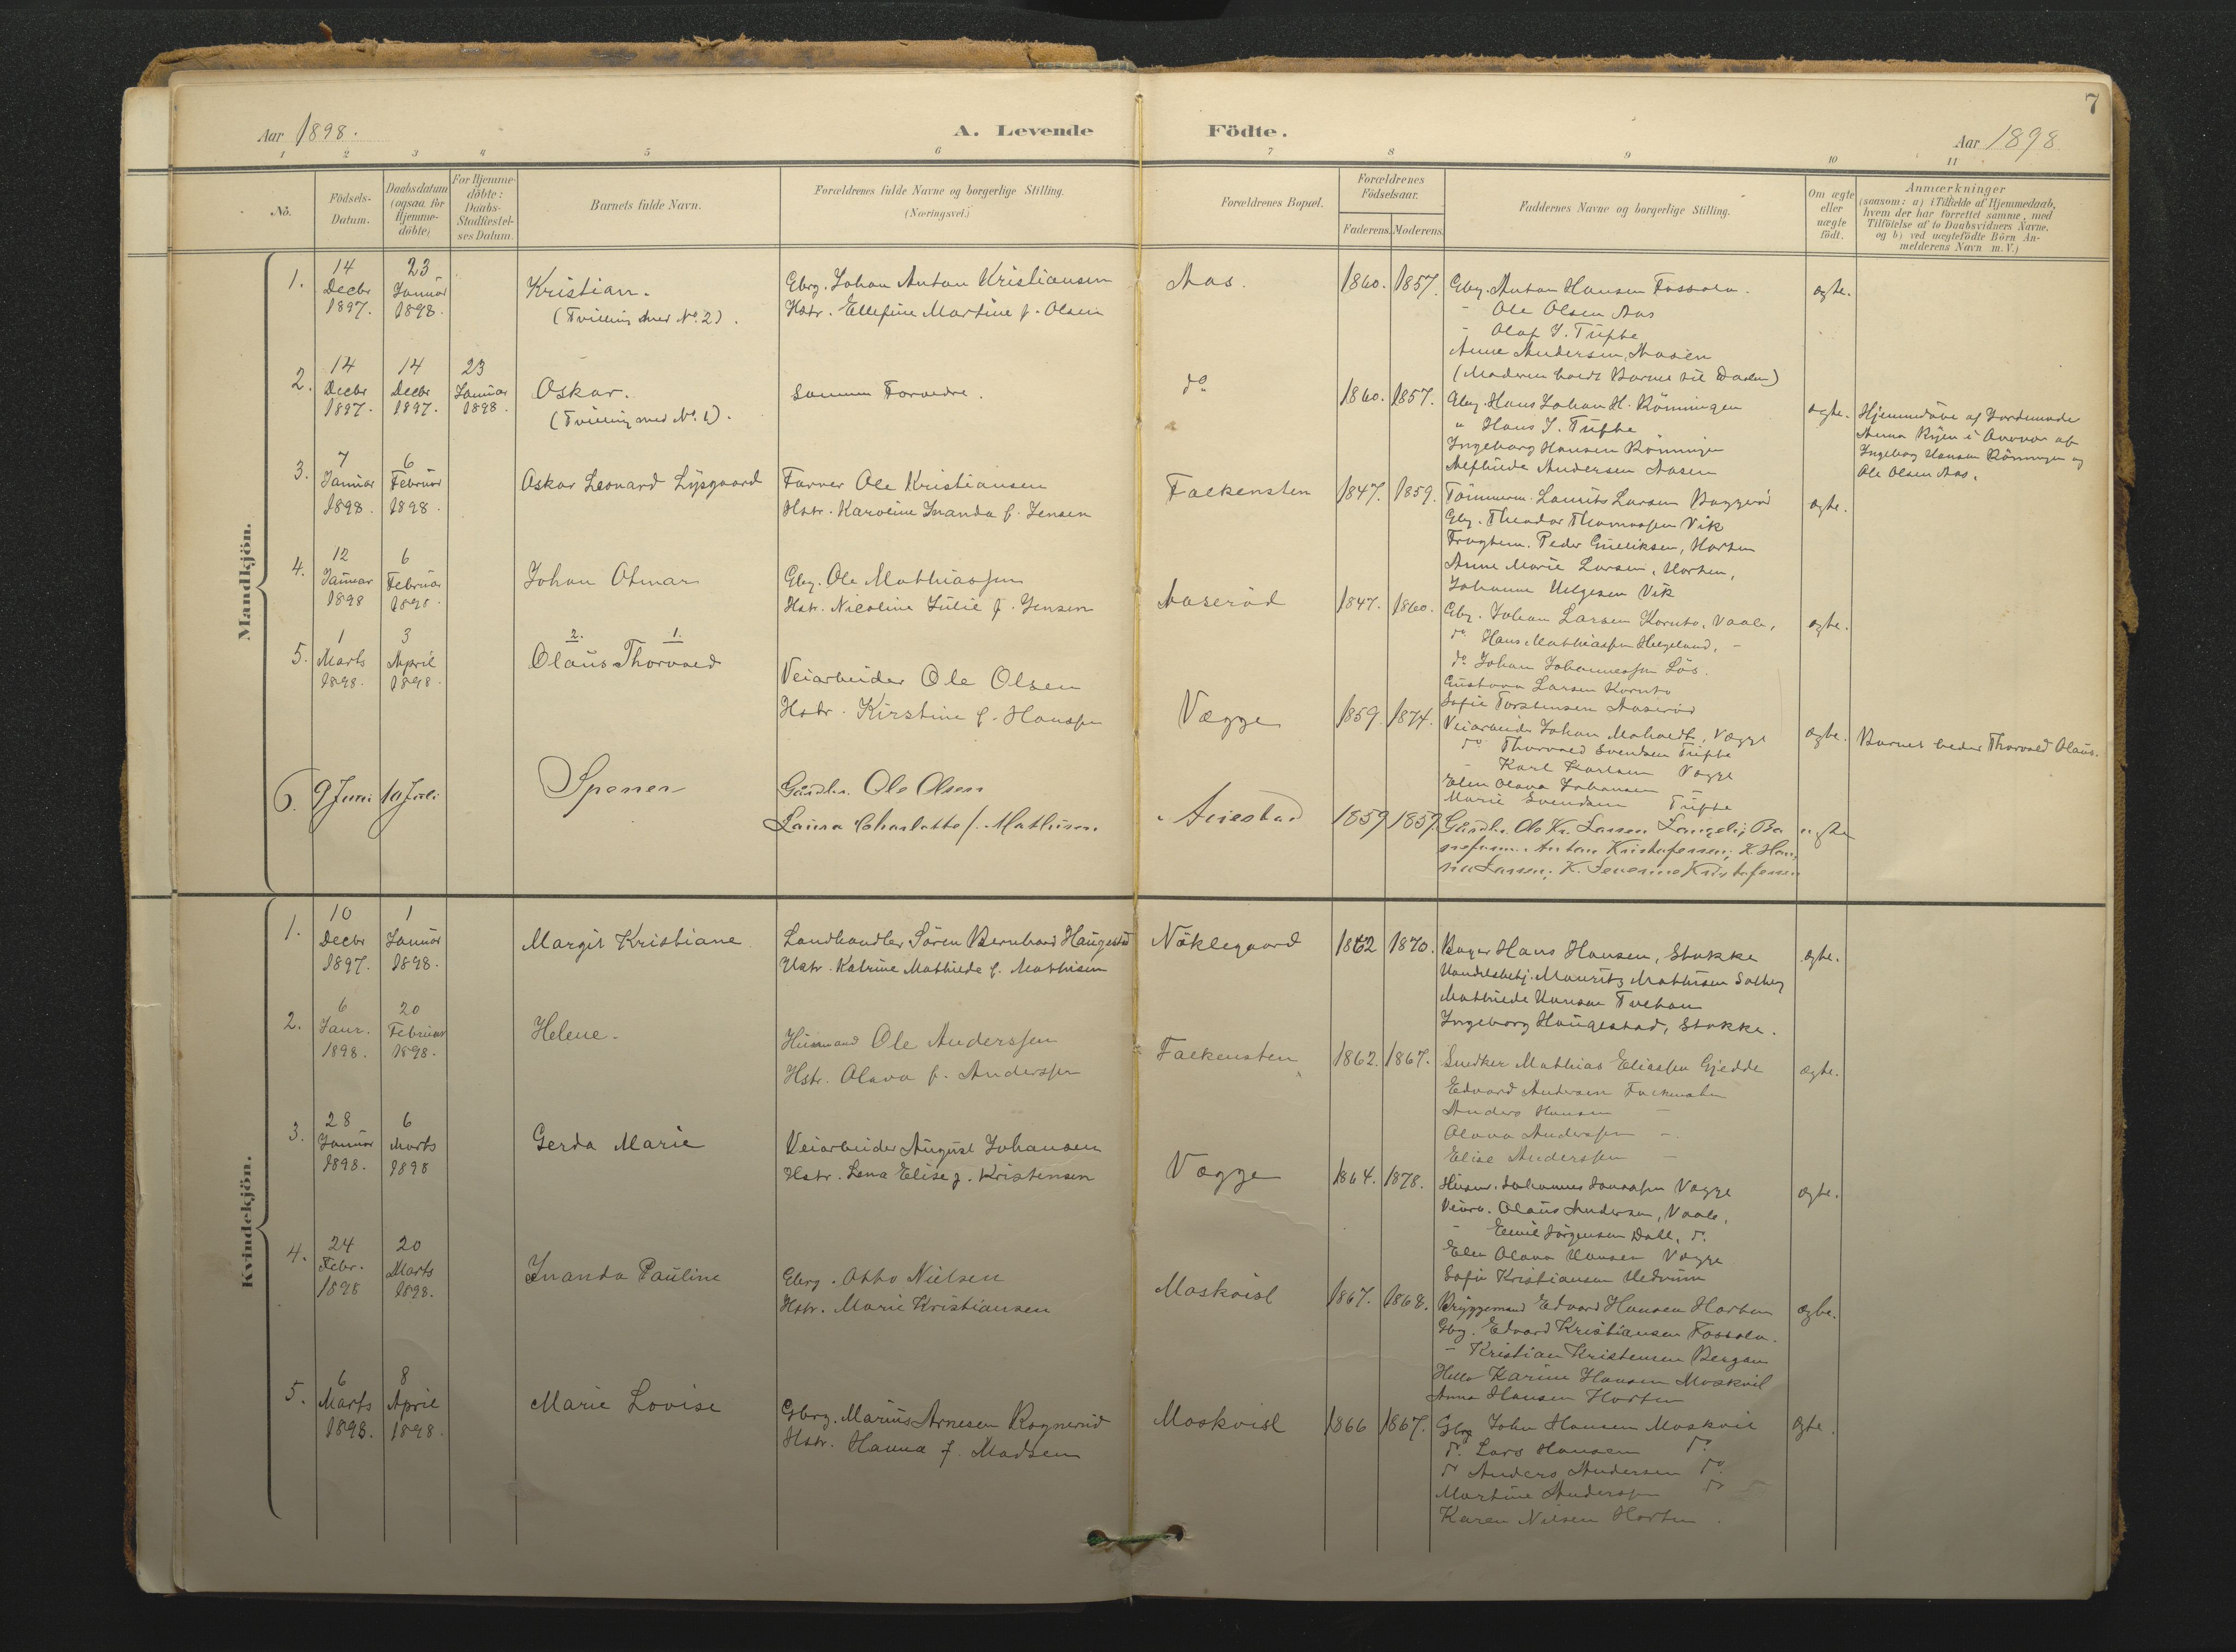 7
Aar 1898.
A. Levende Födte.
Aar 1898
1 2 3 4 5 6 7 8 9 10 11
No.
Födsels-
Datum.
Daabsdatum
(ogsaa for
Hjemme-
döbte)
For Hjemme-
döbte:
Daabs-
Stadfæstel-
ses Datum.
Barnets fulde Navn.
Forældrenes fulde Navne og borgerlige Stilling.
(Næringsvei.)
Forældrenes Bopæl.
Forældrenes
Födselsaar.
Faderens. Moderens.
Faddernes Navne og borgerlige Stilling.
Om ægte
eller
uægte
født.
Anmærkninger
(saasom: a) i Tilfælde af Hjemmedaab,
hvem der har forrettet samme, med
Tilföielse af to Daabsvidners Navne.
og b) ved uægtefödte Börn An-
melderens Navn m. V.)
Mandkjön.
1.
14
Decbr
1897.
23
Januar
1898.
Kristian.
(Tvilling med No. 2).
Gbrg. Johan Anton Kristiansen
Hstr. Ellefine Martine f. Olsen
Aas.
1860. 1857.
Gbrg. Anton Hansen Fossolu.
- Ole Olsen Aas
- Olaf J. Tufte
Anne Andersen, Aasen
(Moderen holdt Barnet til Daaben)
ægte.
2.
14
Decbr
1897.
14
Decbr
1897.
23
Januar
1898.
Oskar.
(Tvilling med No. 1).
samme Forældre.
do
1860. 1857.
Gbrg. Hans Johan H. Rönningen
" Hans J. Tufte
Ingeborg Hansen Rönningen
Andersen Aasen
ægte.
Hjemmedöbt af Jordemoder
Anna Ryen i Overvær af
Ingeborg Hansen Rönningen og
Ole Olsen Aas.
3.
7
Januar
1898.
6
Februar
1898.
Oskar Leonard Lysgaard
Farver Ole Kristiansen
Hstr. Karoline Jnanda f. Jensen
Falkensten
1847. 1859.
Tömmerm. Laurits Larsen Baggerød
Gbrg. Theodor Thomassen Vik
Fragtem. Peder Gulliksen, Horten
Anne Marie Larsen, Horten,
Johanne Helgesen Vik
ægte.
4.
12
Januar
1898
6
Februar
1898.
Johan Otmar
Gbrg. Ole Mathiassen
Hstr. Nicoline Julie f. Jensen
Aaseröd
1847. 1860.
Gbrg. Johan Larsen Kornbo, Vaale,
do Hans Mathiassen Helgeland, -
do Johan Johannessen Lös.
Gustava Larsen Kornbo
Sofie Torstensen Aaseröd
ægte.
5.
1
Marts
1898.
3
April
1898.
2. 1.
Olaus Thorvald
Veiarbeider Ole Olsen
Hstr. Kirstine f. Hanssen
Vegge
1859. 1874.
Veiarbeider Johan Vegge
do Thorvald Svendsen Tufte
- Karl Karlsen Vegge
Elen Olava Johansen -
Marie Svendsen Tufte
ægte.
Barnet heder Thorvald Olaus.
6.
9 Juni
10 Juli
Spener
Gaardbr. Ole Olsen
Laura Charlotte f. Mathisen
Auestad
1859 1857.
Gaardbr. Ole Kr. Larsen Langeli; Ba
neform. Anton Kristofersen; K. Han
na Larsen; K. Severine Kristofersen
ægte
Kvindekjön.
1.
10
Decbr
1897.
1
Januar
1898.
Margit Kristiane
Landhandler Sören Bernhard Haugestad
Hstr. Katrine Mathilde f. Mathisen
Nöklegaard
1862 1870.
Bager Hans Hansen, Stokke
Handelsbetj. Mauritz Mathisen Solberg
Mathilde Hansen Tvetan
Ingeborg Haugestad, Stokke.
ægte.
2.
6
Janr.
1898.
20
Februar
1898.
Helene.
Husmand Ole Anderssen
Hstr. Olava f. Anderssen
Falkensten
1862. 1867.
Snedker Mathias Eliassen Gjedde
Edvard Andersen Falkensten
Anders Hansen -
Olava Anderssen -
Elise Anderssen -
ægte.
3.
28
Januar
1898.
6
Marts
1898
Gerda Marie
Veiarbeider August Johansen
Hstr. Lena Elise f. Kristensen
Vegge
1864. 1878.
Husm. Johannes Vegge
Veiarb. Olaus Andersen, Vaale,
- Emil Jörgensen Dall, do.
Elen Olava Hansen Vegge
Sofie Kristiansen Hedrum
ægte.
4.
24
Febr.
1898
20
Marts
1898.
Jnanda Pauline
Gbrg. Otto Nielsen
Hstr. Marie Kristiansen
Moskvisl
1867. 1868.
Bryggemand Edvard Hansen Horten
Gbrg. Edvard Kristiansen Fossolu.
- Kristian Kristensen Bergan
Helle Karine Hansen Moskvil
Anna Hansen Horten
ægte.
5.
6
Marts
1898.
8
April
1898.
Marie Lovise
Gbrg. Marius Arnesen Rognerud
Hstr. Hanna f. Madsen
Moskvisl
1866 1867.
Gbrg John Hansen Moskvil
do. Lars Hansen do.
do Anders Andersen do.
Martine Anderssen do
Karen Nilsen Horten.
ægte.